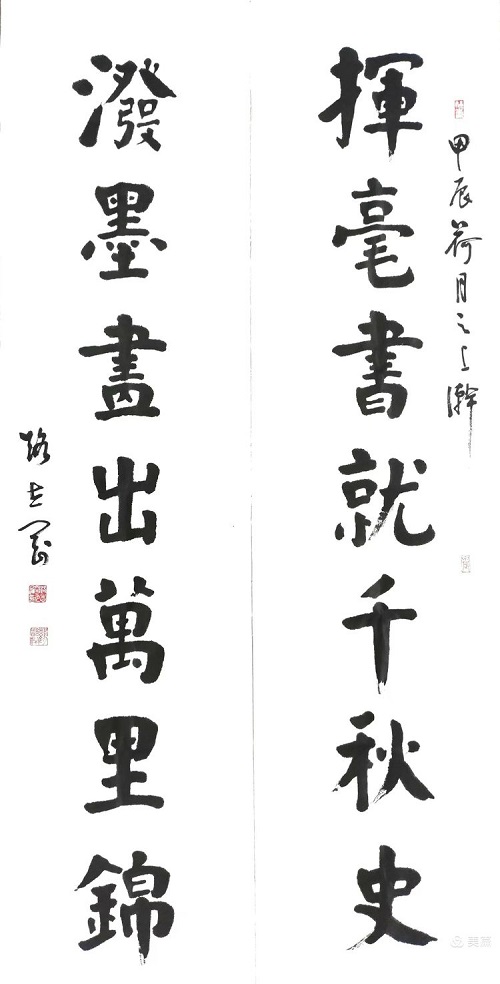 甲辰荷月之上澣
揮毫書就千秋史
潑墨畫出萬里錦
路志
美篇